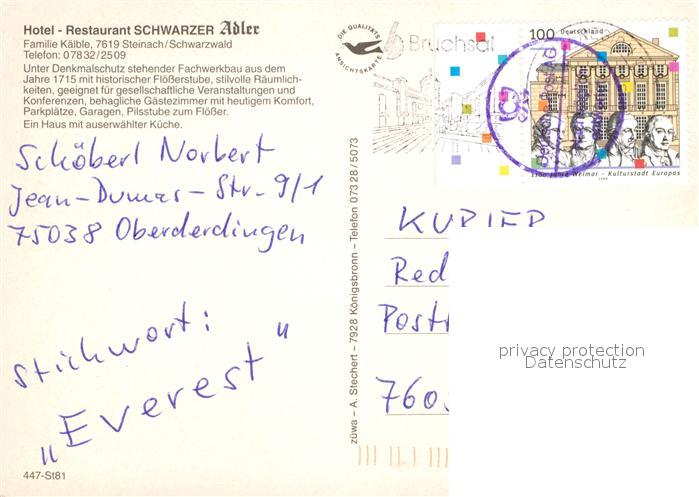 Hotel - Restaurant SCHWARZER Adler
Familie Kälble, 7619 Steinach/Schwarzwald
Telefon: 07832/2509
Unter Denkmalschutz stehender Fachwerkbau aus dem
Jahre 1715 mit historischer Flößerstube, stilvolle Räumlich-
keiten, geeignet für gesellschaftliche Veranstaltungen und
Konferenzen, behagliche Gästezimmer mit heutigem Komfort,
Parkplätze, Garagen, Pilsstube zum Flößer.
Ein Haus mit auserwählter Küche.
Schöberl Norbert
Jean-Dumas-Str. 9/1
75038 Oberderdingen
Stichwort:
„Everest"
447-St81
züwa – A. Stechert – 7928 Königsbronn – Telefon 07328/5073
DIE QUALITÄTS
ANSICHTSKARTE
Bruchsal
100 Deutschland
Deutsche Post AG
1100 Jahre Weimar - Kulturstadt Europas
1999
KURIER
Red
Post
760
privacy protection
Datenschutz